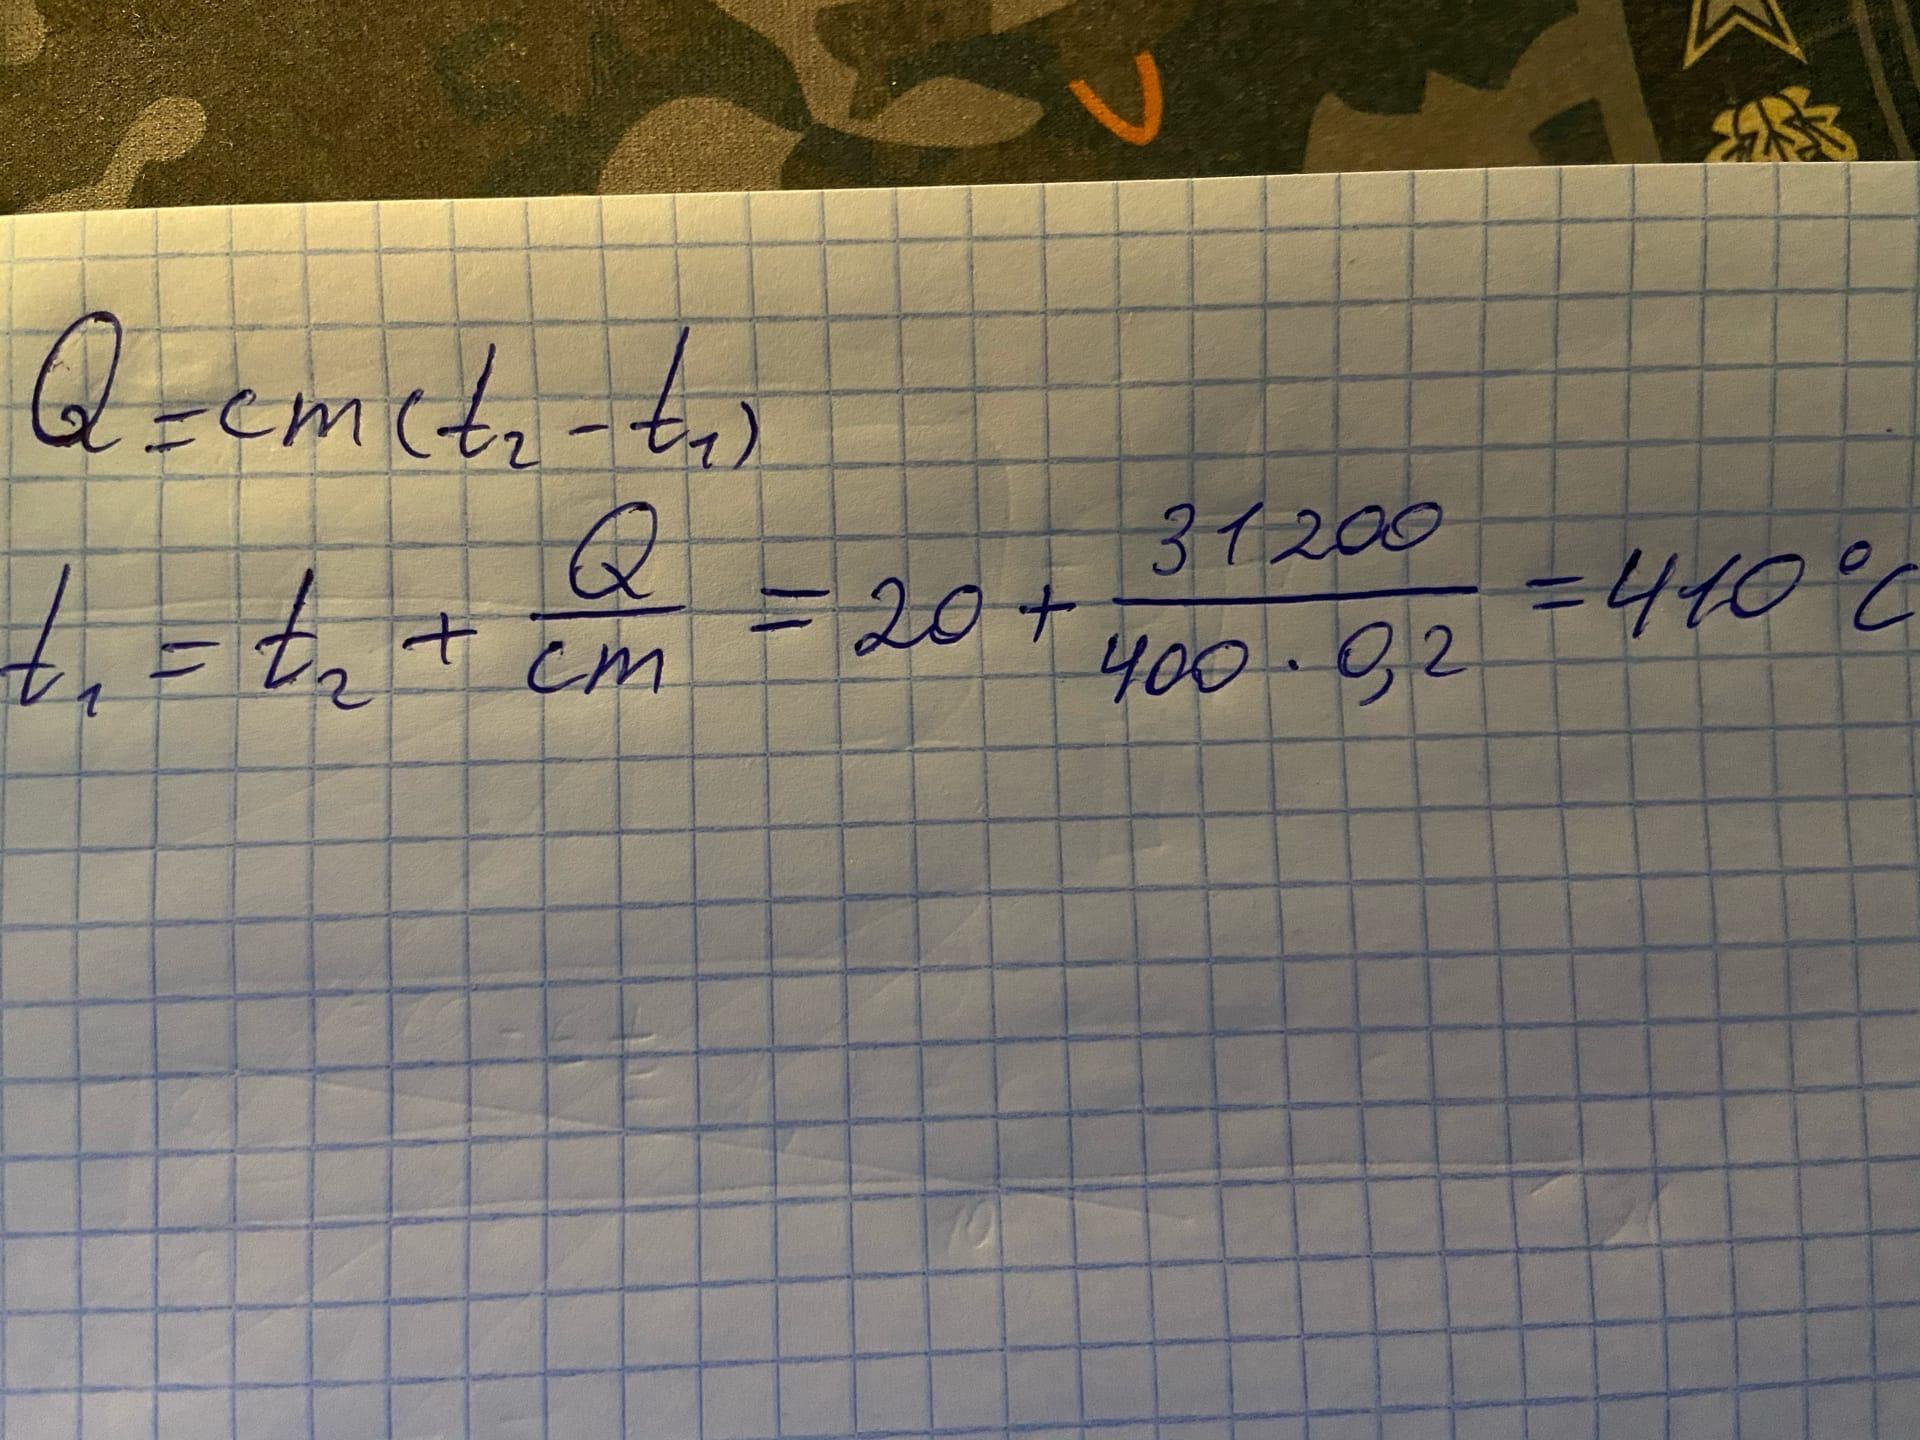 Q = cm(t₂ - t₁)
t₁ = t₂ + Q/cm = 20 + 31200/(400 · 0,2) = 410°C